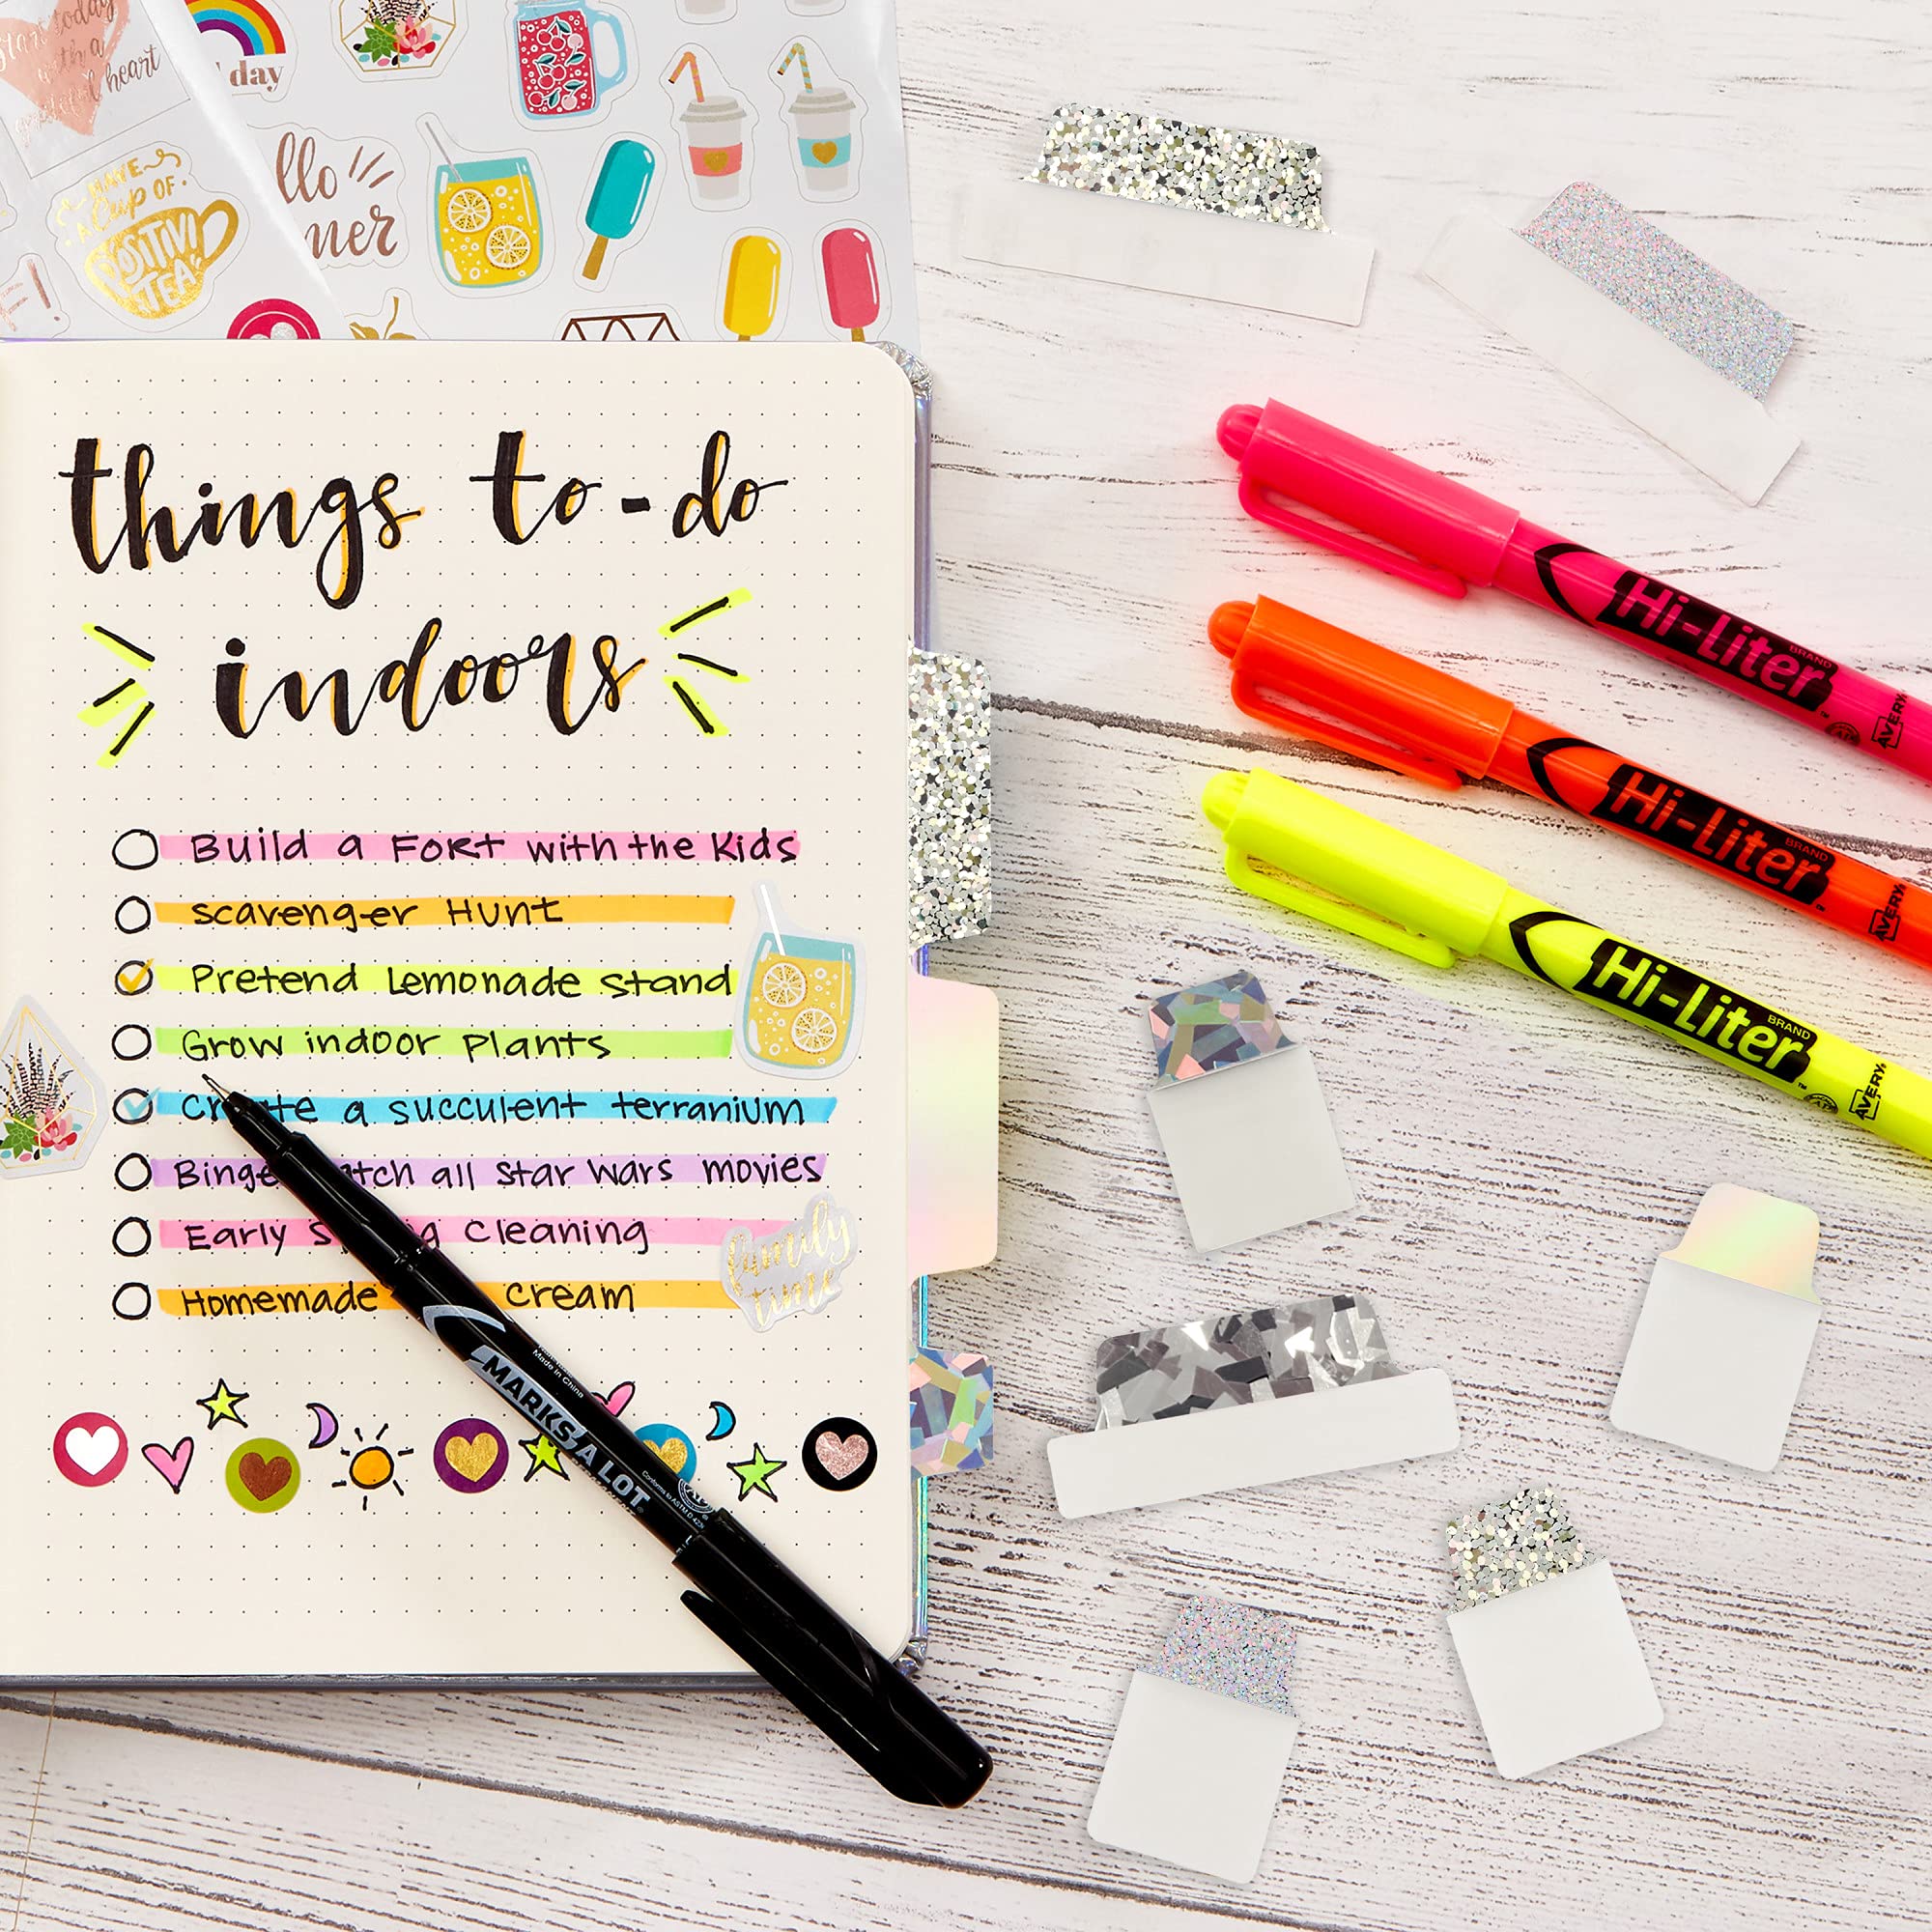 start today
with a
grateful heart
day
HAVE
A Cup OF
POSITIVI
TEA
llo
mer
things to-do
indoors
Build a Fort with the Kids
Scavenger Hunt
Pretend Lemonade Stand
Grow indoor Plants
Create a succulent terranium
Binge watch all Star Wars movies
Early Spring Cleaning
Homemade cream
family
time
Made in China
MARKS A LOT
Conforms to ASTM D 4236
Hi-Liter
BRAND
AVERY
Hi-Liter
BRAND
AVERY
Hi-Liter
BRAND
AVERY